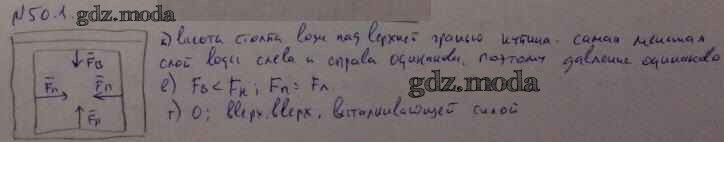 N50.1. gdz.moda
б) высота столба воды над верхней гранью кубика. самая меньшая
слой воды слева и справа одинаковы, поэтому давление одинаково
в) Fв < Fн; Fп = Fл
gdz.moda
г) 0; вверх, вверх, выталкивающей силой
Fв
Fл Fп
Fн